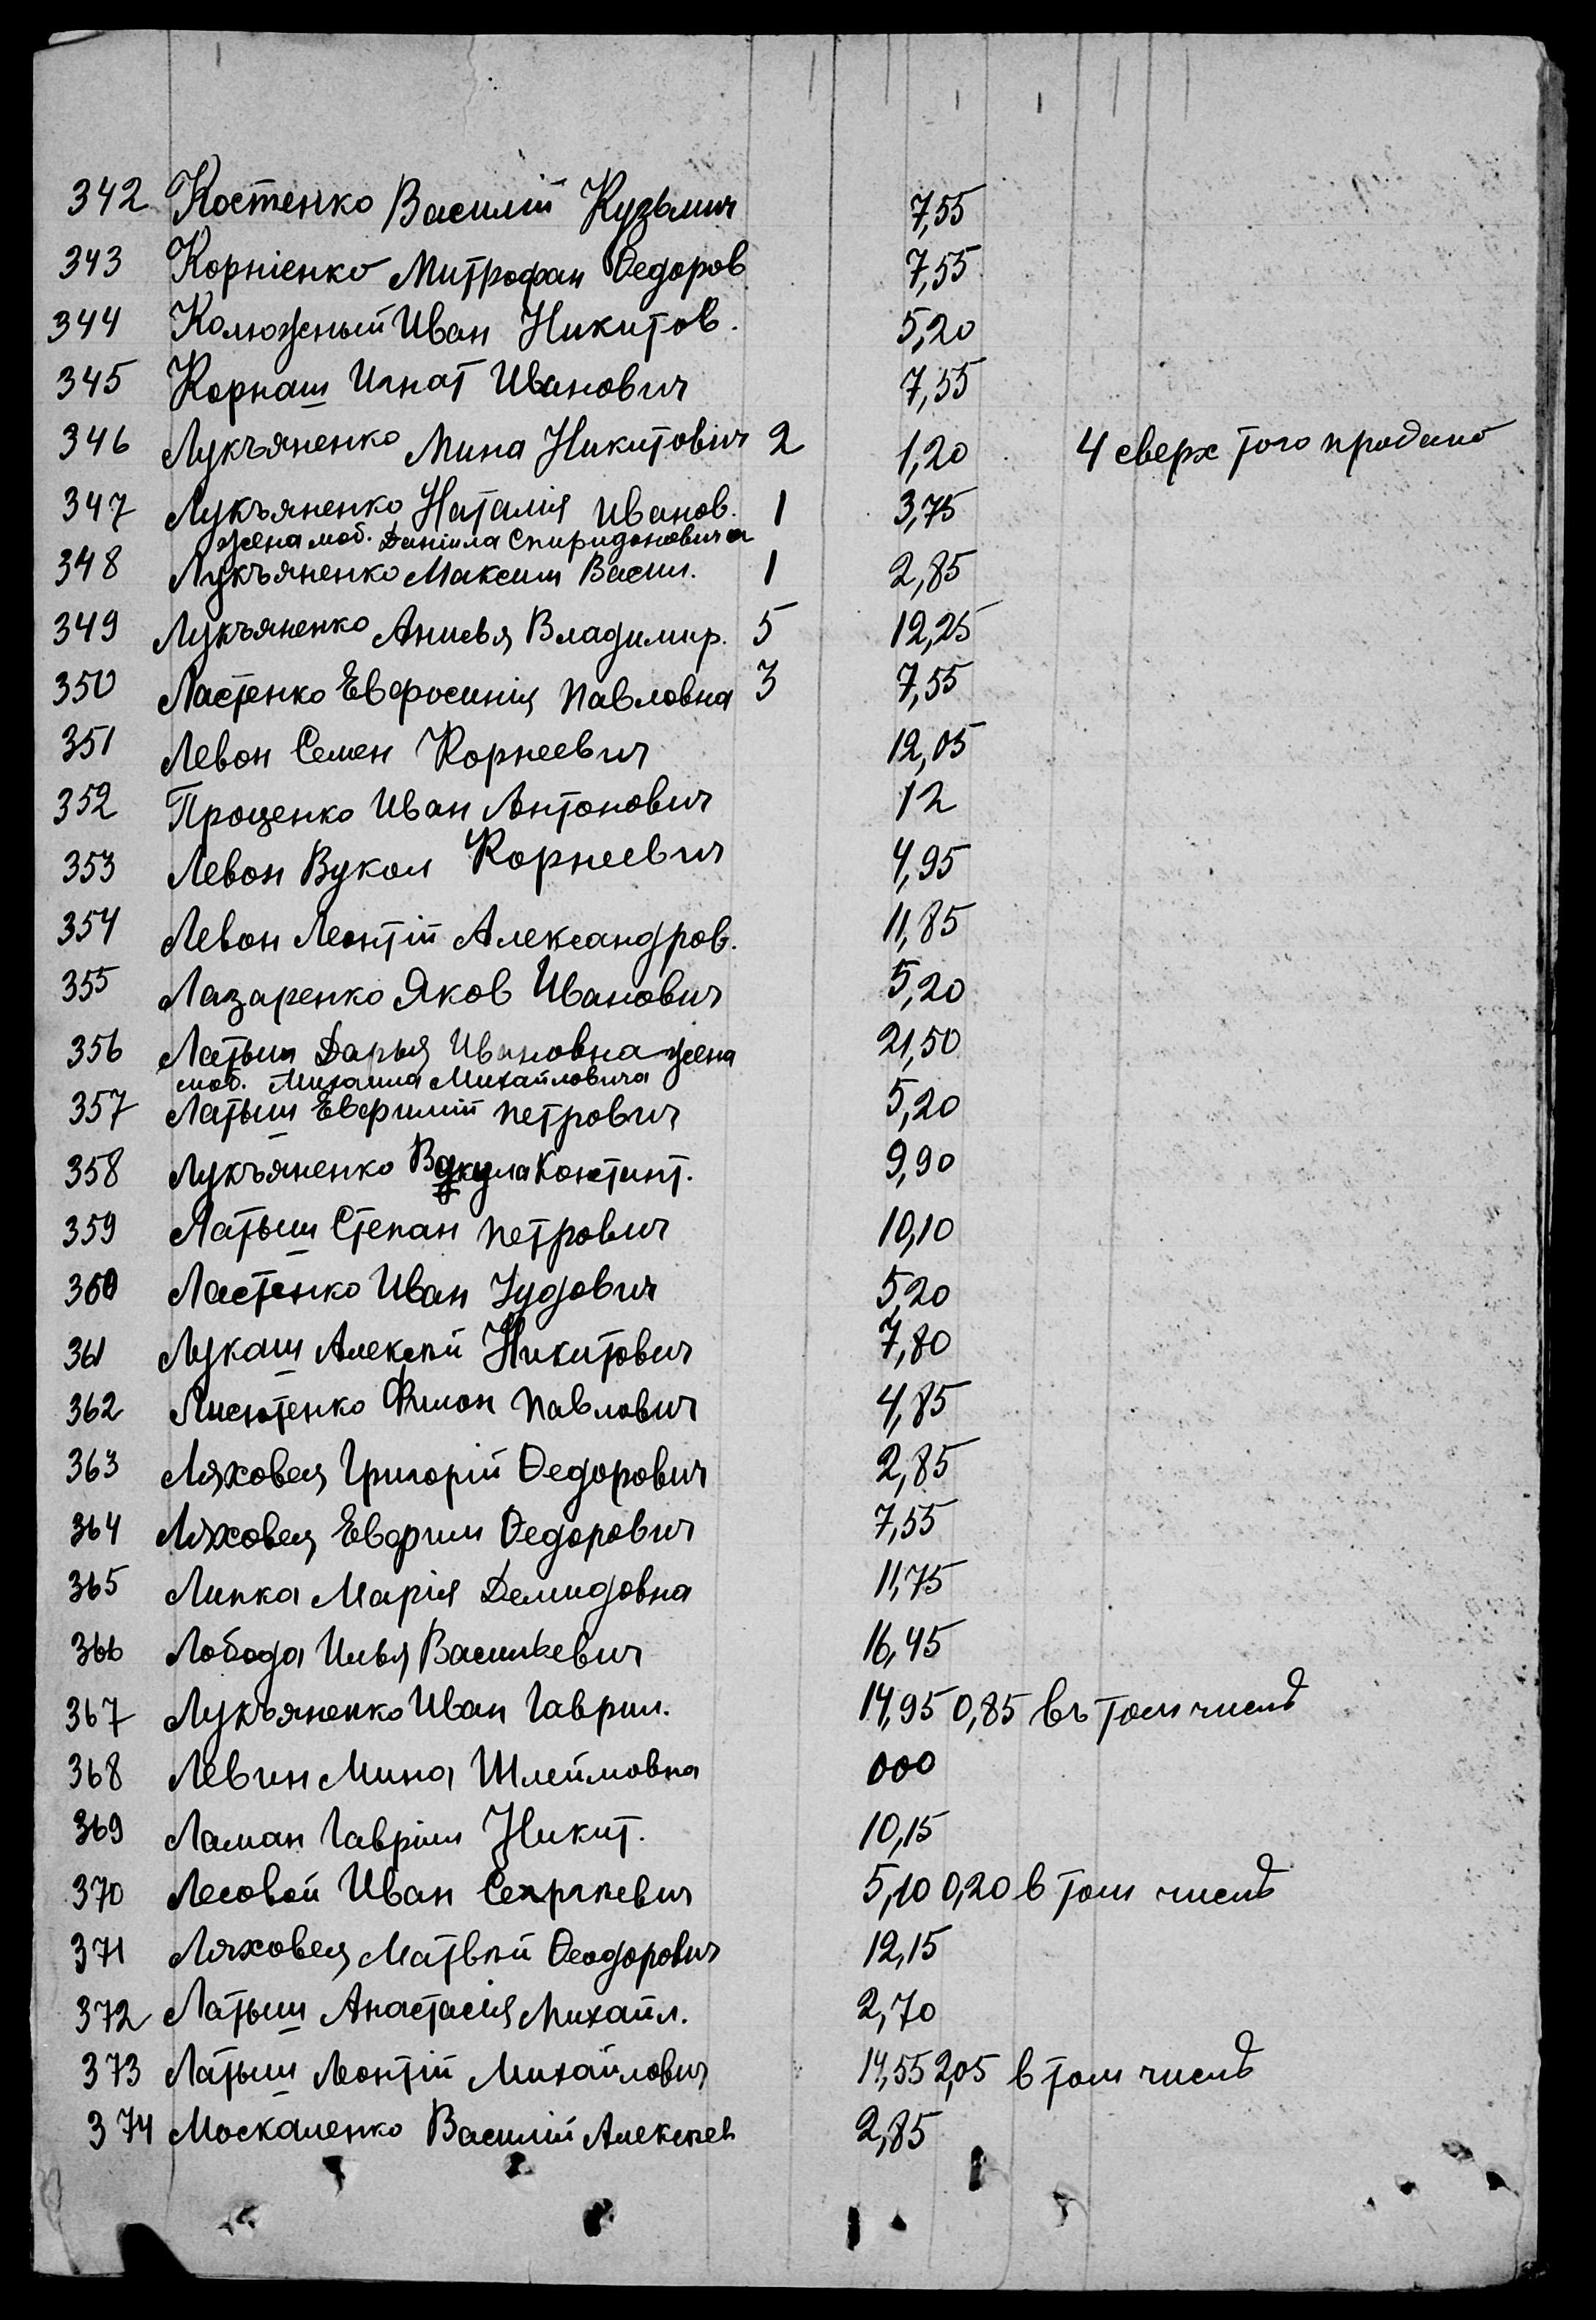 342 Костенко Василій Кузьмич 7,55
343 Корніенко Митрофан Ѳедоров 7,55
344 Калюжный Иван Никитов. 5,20
345 Корнаш Игнат Иванович 7,55
346 Лукъяненко Мина Никитович 2 1,20 4 сверх того продано
347 Лукъяненко Наталія Иванов. 1 3,75
жена моб. Даніила Спиридоновича
348 Лукъяненко Максим Васил. 1 2,85
349 Лукъяненко Анисья Владимир. 5 12,25
350 Ластенко Евфросинія Павловна 3 7,55
351 Левон Семен Корнеевич 12,05
352 Проценко Иван Антонович 12
353 Левон Вукол Корнеевич 4,95
354 Левон Леонтій Александров. 11,85
355 Лазаренко Яков Иванович 5,20
356 Латыш Дарья Ивановна жена 21,50
моб. Михаила Михайловича
357 Латыш Евфимій Петрович 5,20
358 Лукъяненко Вакула Констант. 9,90
359 Латыш Степан Петрович 10,10
360 Ластенко Иван Іудович 5,20
361 Лукаш Алексѣй Никитович 7,80
362 Лисютенко Филон Павлович 4,85
363 Ляховец Григорій Ѳедорович 2,85
364 Ляховец Евфим Ѳедорович 7,55
365 Липка Марія Демидовна 11,75
366 Лобода Илья Васильевич 16,45
367 Лукъяненко Иван Гаврил. 14,95 0,85 въ том числѣ
368 Левин Мина Шлеймовна 000
369 Ламан Гавріил Никит. 10,15
370 Лесовой Иван Сергѣевич 5,10 0,20 в том числѣ
371 Ляховец Матвѣй Ѳеодорович 12,15
372 Латыш Анастасія Михайл. 2,70
373 Латыш Леонтій Михайлович 14,55 2,05 в том числѣ
374 Москаленко Василій Алексѣев 2,85